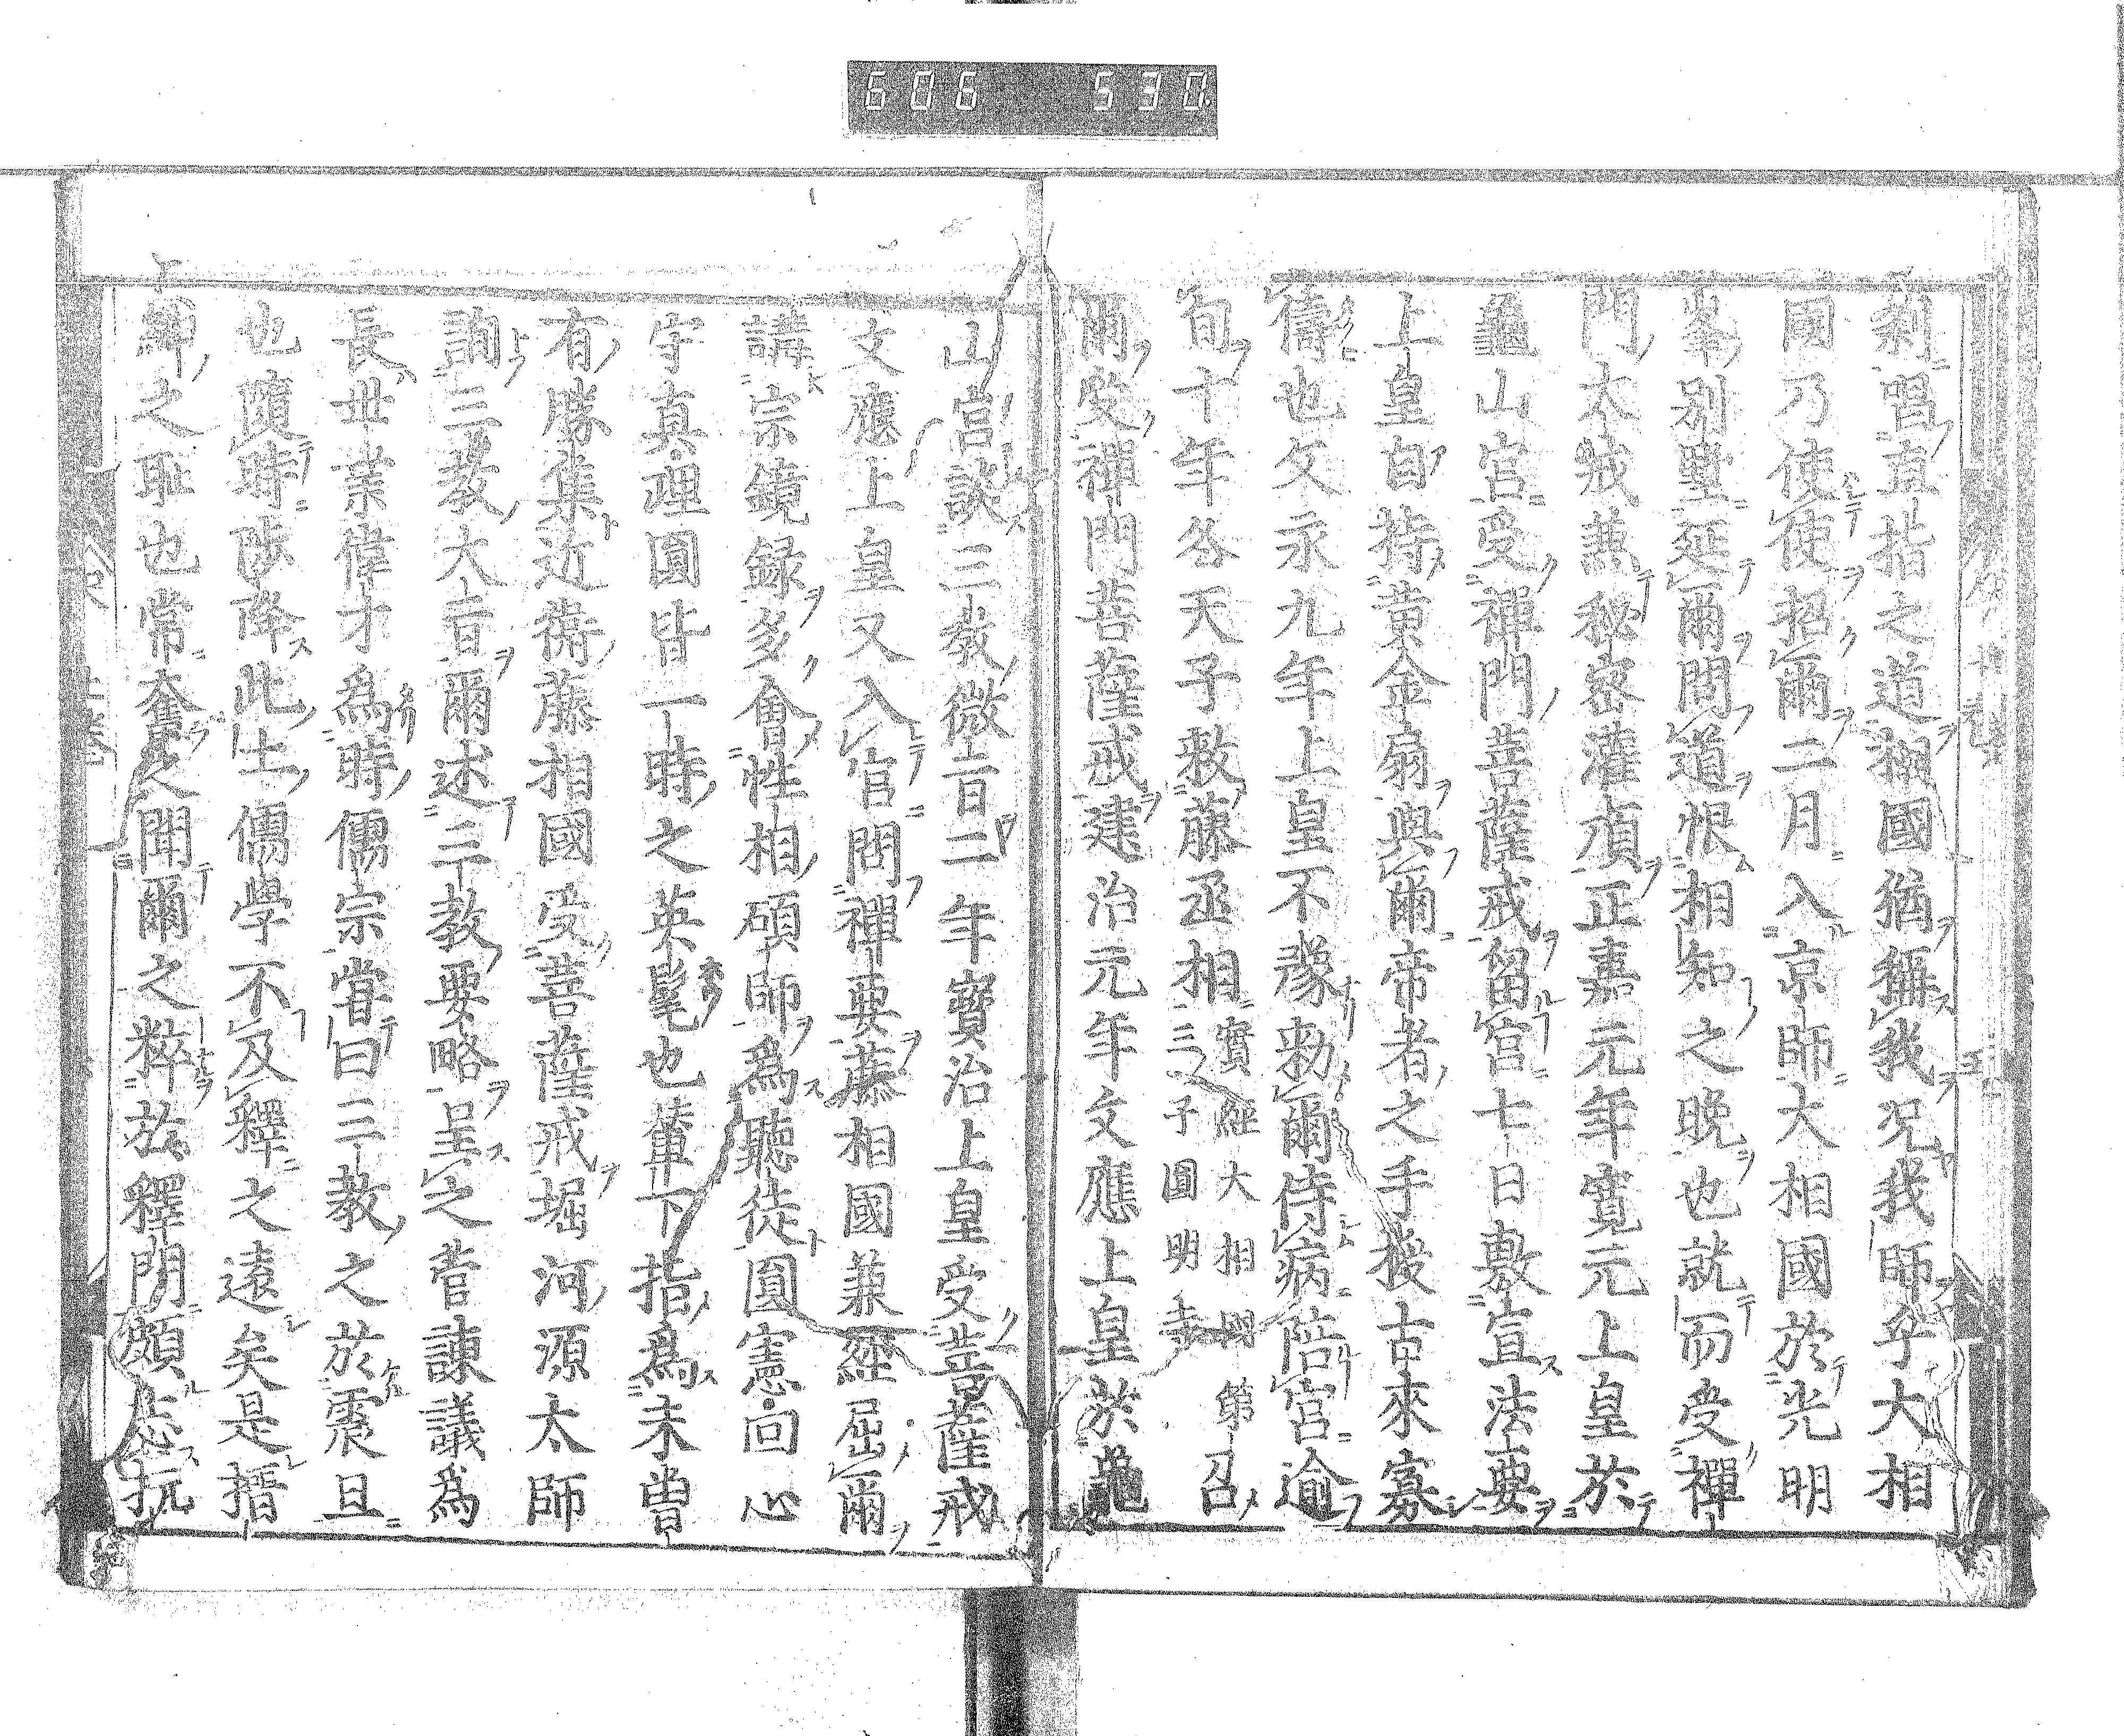 606 530
刹唱直指之道擬國猶稱我況我師乎大相
國乃使使招爾二月入京師大相國於光明
峯別墅延爾問道恨相知之晚也就而受禪
門太戒兼秘密灌頂正嘉元年寛元上皇於
龜山宮受禪門菩薩戒留宮七日敷宣法要
上皇自持黃金扇與爾帝者之手授古來寡
儔也文永九年上皇不豫勅爾侍病陪宮逾
旬十年冬天子敕藤丞相實經大相國第三子圓明寺召
爾受禪門菩薩戒建治元年文應上皇於龜
山宮談三教微旨二年寶治上皇受菩薩戒
文應上皇又入宮問禪要藤相國兼經屈爾
講宗鏡録多會性相碩師爲聽徒圓憲回心
守真理圓皆一時之英髦也輦下指爲未曾
有勝集近衞藤相國受菩薩戒堀河源太師
詢三教大旨爾述三教要略呈之菅諫議爲
長世業偉才爲時儒宗嘗曰三教之於震旦
也隨時陟降此土儒學不及釋之遠矣是搢
紳之恥也常奮之聞爾之粹於釋門頗恣抗